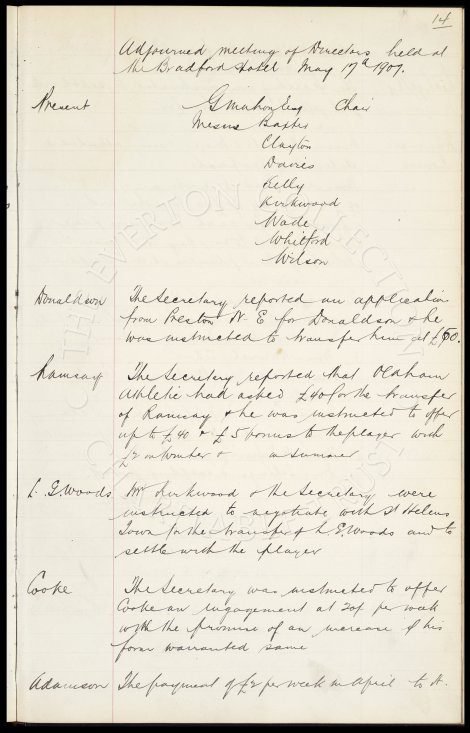 14
Adjourned meeting of Directors held at
the Bradford Hotel May 17th 1907.
Present G Mahon Esq Chair
Messrs Baxter
Clayton
Davies
Kelly
Kirkwood
Wade
Whitford
Wilson
Donaldson The Secretary reported an application
from Preston N. E for Donaldson & he
was instructed to transfer him at £50.
Ramsay The Secretary reported that Oldham
Athletic had asked £40 for the transfer
of Ramsay & he was instructed to offer
up to £40 & £5 bonus to the player with
£2 in Winter & in Summer
L. G. Woods Mr Kirkwood & the Secretary were
instructed to negotiate with St Helens
Town for the transfer of L E. Woods and to
settle with the player
Cooke The Secretary was instructed to offer
Cooke an engagement at 20/- per week
with the promise of an increase if his
form warranted same
Adamson The payment of £2 per week in April to A.
THE EVERTON COLLECTION
CHARITABLE TRUST